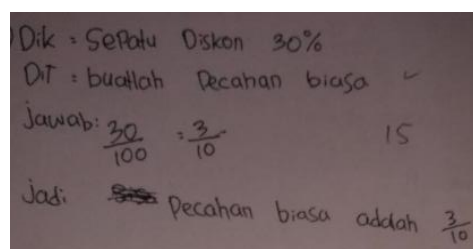 Dik : Sepatu Diskon 30%
DiT : buatlah Pecahan biasa
jawab: 30/100 = 3/10
15
jadi Pecahan biasa adalah 3/10